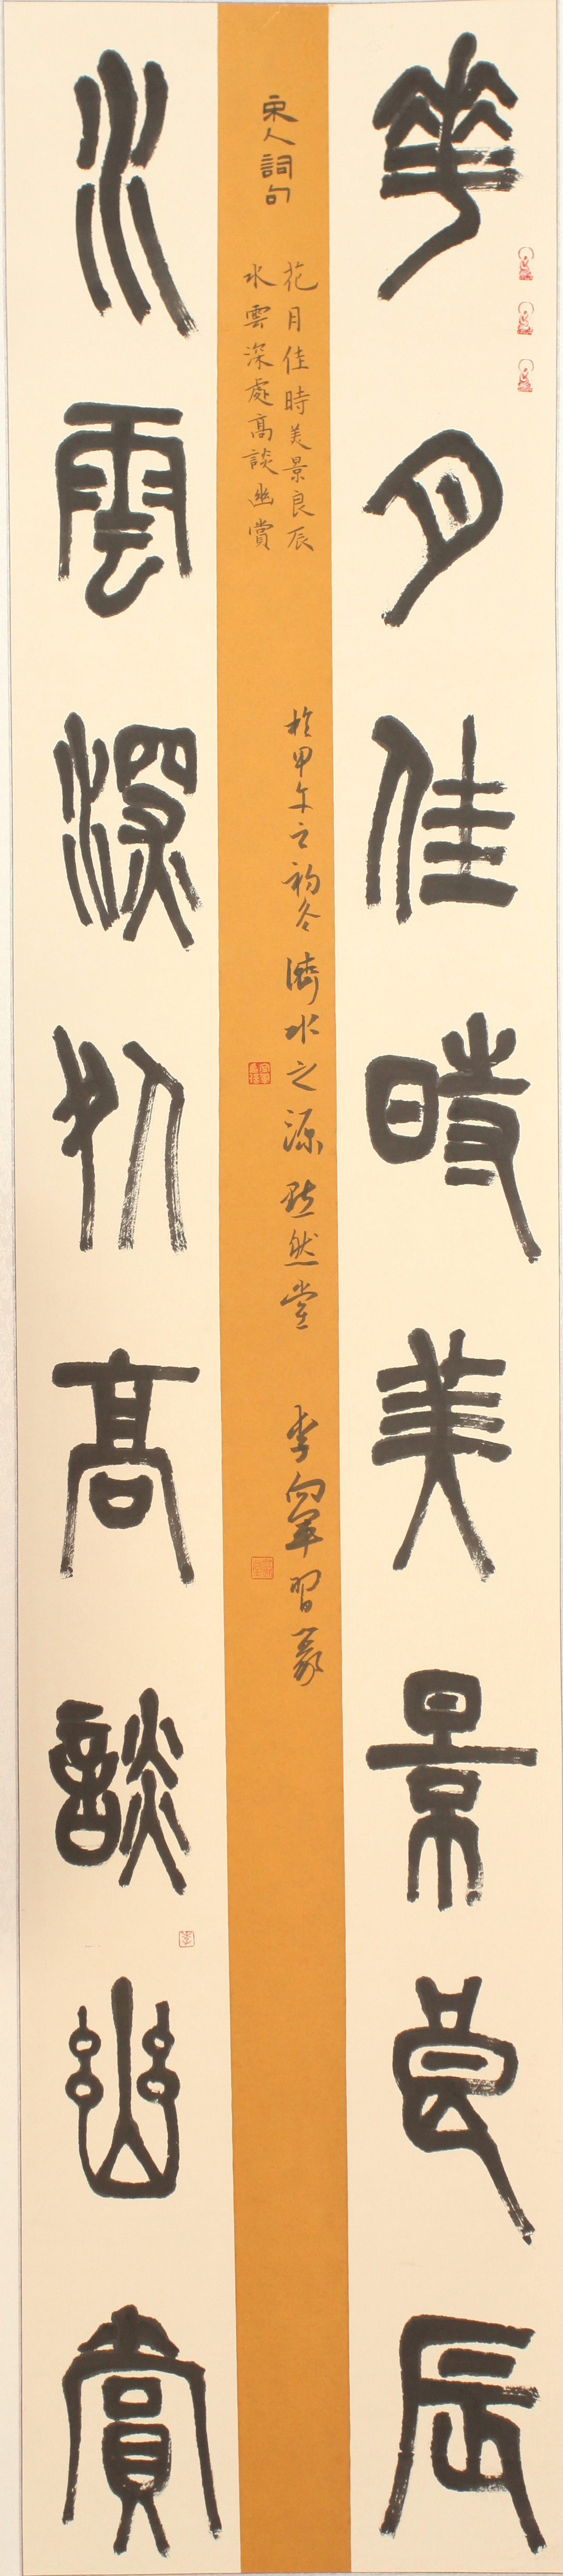 華月佳時美景良辰
宋人詞句
花月佳時美景良辰
水雲深處高談幽賞
於甲午之初冬濟水之源默然堂李向軍習篆
水雲深処高談幽賞